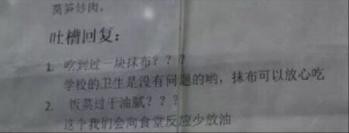 莴笋炒肉。
吐槽回复：
1. 吃到过一块抹布？？？
学校的卫生是没有问题的哟，抹布可以放心吃
2. 饭菜过于油腻？？？
这个我们会向食堂反应少放油